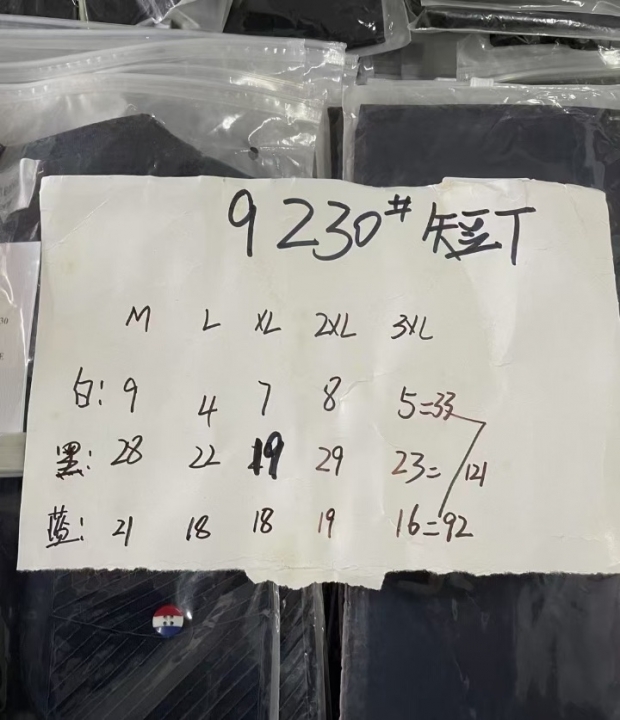 9230# 短T
M L XL 2XL 3XL
白: 9 4 7 8 5=33
黑: 28 22 19 29 23= 121
蓝: 21 18 18 19 16=92